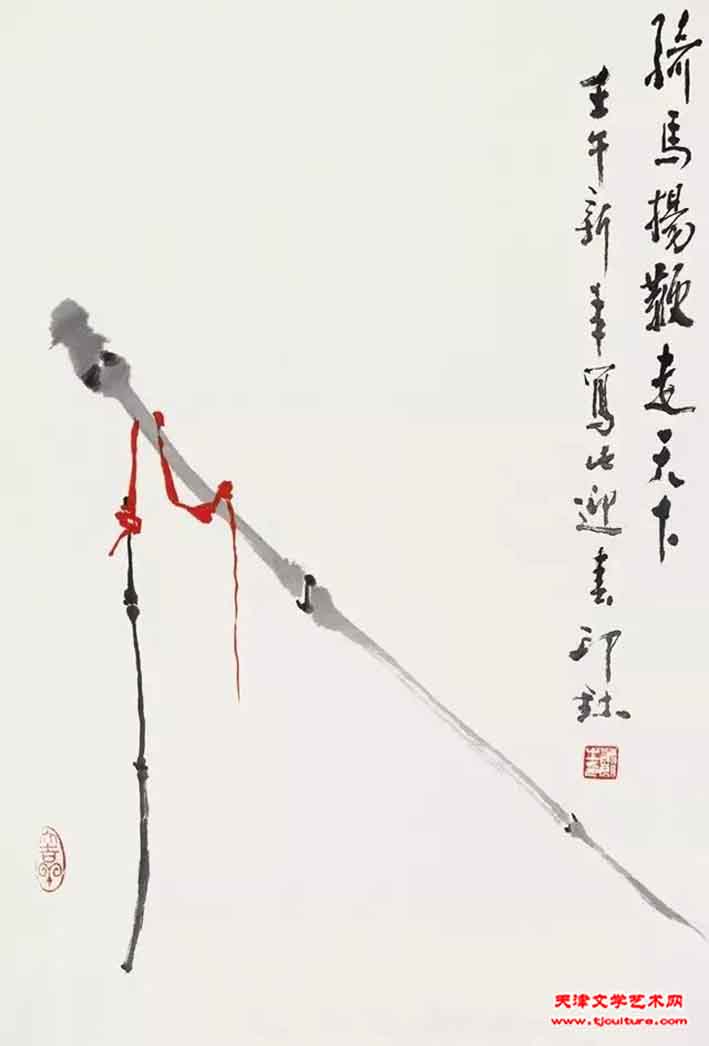 騎馬揚鞭走天下
壬午新年寫此迎春 印缽
天津文学艺术网
www.tjculture.com